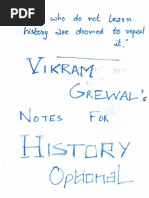 who do not learn
history are doomed to repeat
it."
VIKRAM
GREWAL's
NOTES FOR
HISTORY
Optional